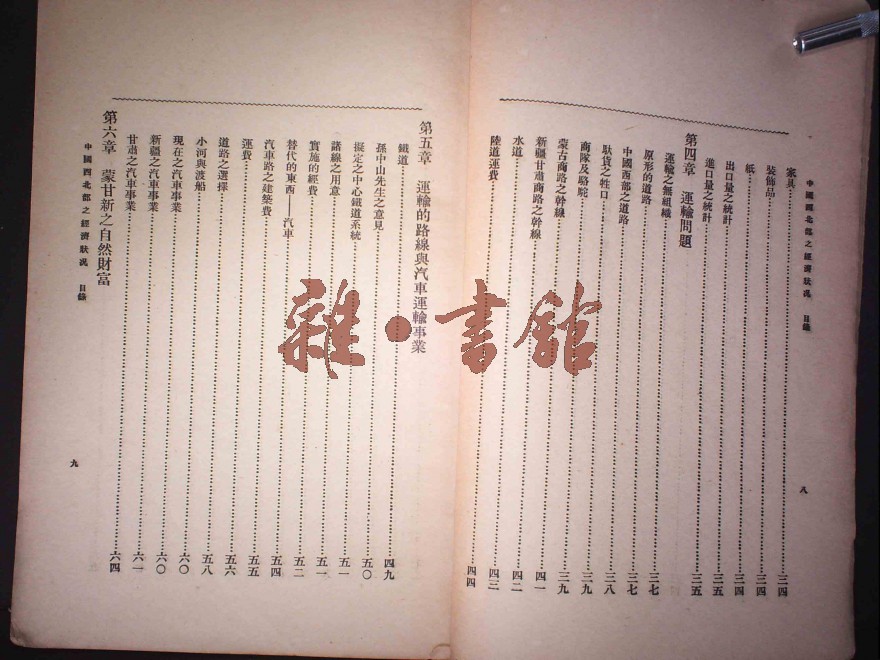 中國西北部之經濟狀況 目錄
家具 三四
裝飾品 三四
紙 三四
出口量之統計 三五
進口量之統計 三五
第四章 運輸問題
運輸之無組織 三七
原形的道路 三七
中國西部之道路 三八
馱貨之牲口 三九
商隊及駱駝 三九
蒙古商路之幹線 四一
新疆甘肅商路之幹線 四二
水道 四三
陸道運費 四四
八
第五章 運輸的路線與汽車運輸事業
鐵道 四九
孫中山先生之意見 五〇
擬定之中心鐵道系統 五一
諸線之用意 五一
實施的經費 五二
替代的東西——汽車 五四
汽車路之建築費 五五
運費 五六
道路之選擇 五八
小河與渡船 六〇
現在之汽車事業 六〇
新疆之汽車事業 六一
甘肅之汽車事業 六四
第六章 蒙甘新之自然財富
中國西北部之經濟狀況 目錄
九
雜·書館